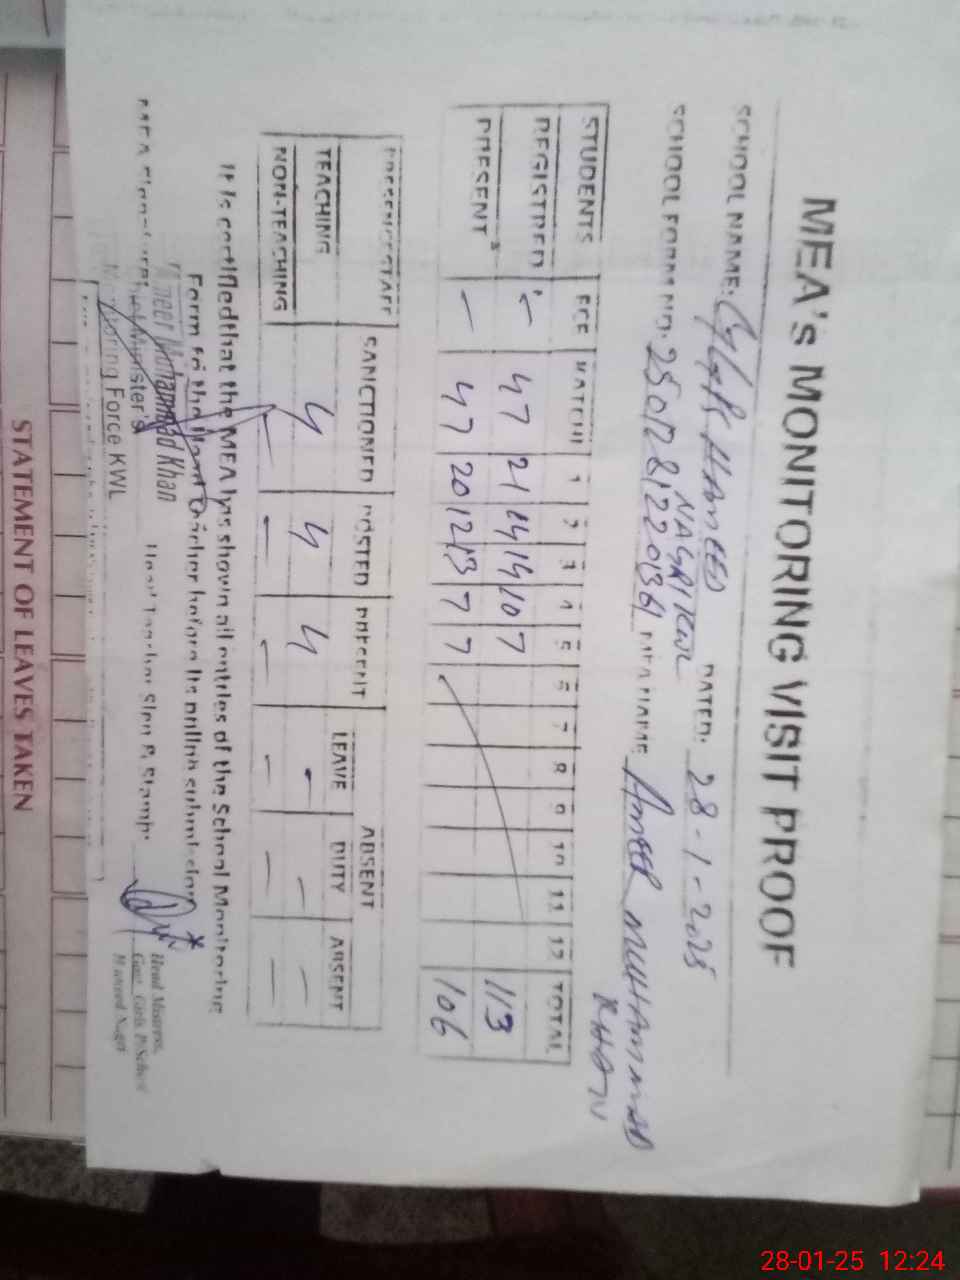 MEA's MONITORING VISIT PROOF
SCHOOL NAME: HAMEED DATED: 28-1-2025
NAGRI KWL
SCHOOL FORM NO: MEA NAME AMEER MUHAMMAD
KHAN
STUDENTS ECE KATCHI 1 2 3 4 5 6 7 8 9 10 11 12 TOTAL
REGISTRED - 47 21 14 14 10 7 113
PRESENT - 47 20 12 13 7 7 106
PRESENCSTAFF SANCTIONED POSTED PRESENT ABSENT
LEAVE DUTY ABSENT
TEACHING 4 4 4 - - -
NON-TEACHING - - - - - -
It is certifiedthat the MEA has shown all entries of the School Monitoring
Form to the Head Teacher before its online submission *
MEA Signature: Head Teacher Sign & Stamp:
Ameer Mohammad Khan
Chief Minister's
Monitoring Force KWL
Head Mistress,
Govt. Girls P/School
Hameed Nagri
STATEMENT OF LEAVES TAKEN
28-01-25 12:24